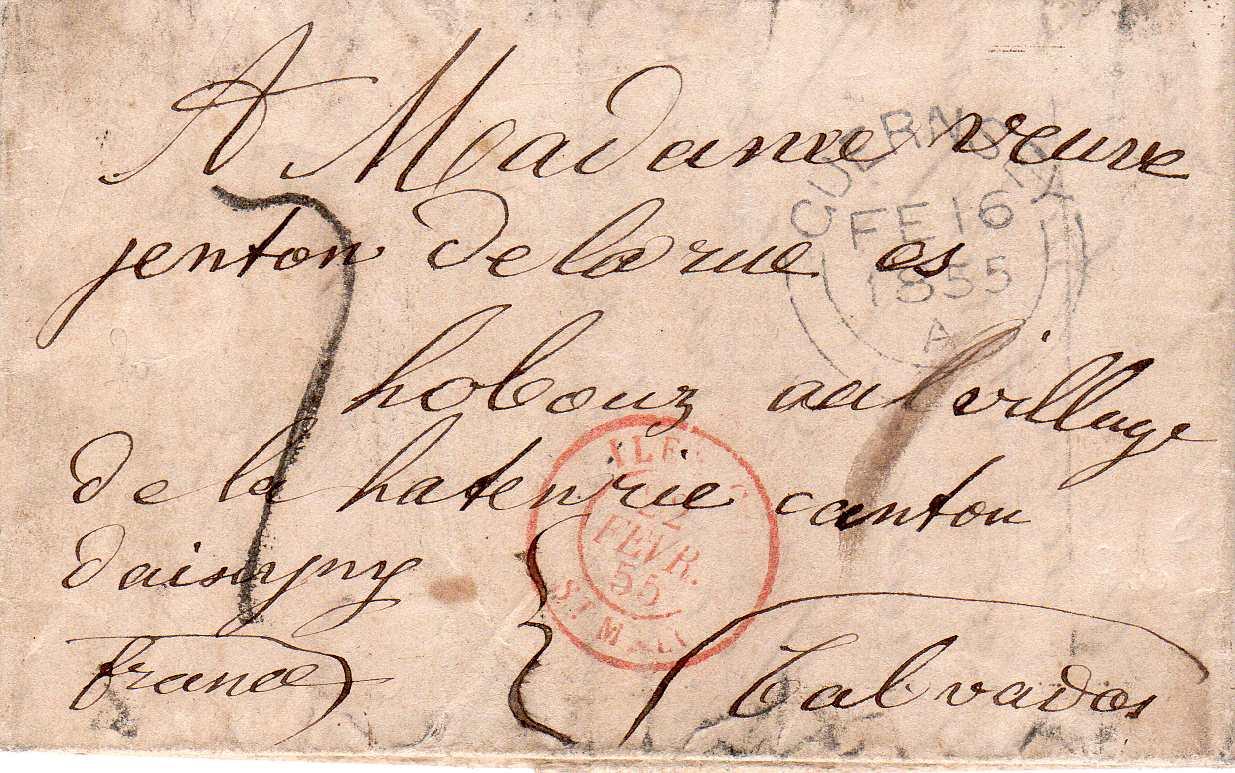 A Madame veuve
jenton de la rue es
hobouz aul village
de la hatenrie canton
daisigny
france
Calvados
GUERNSEY
FE 16
1855
A
22
FEVR.
55
ST MALO